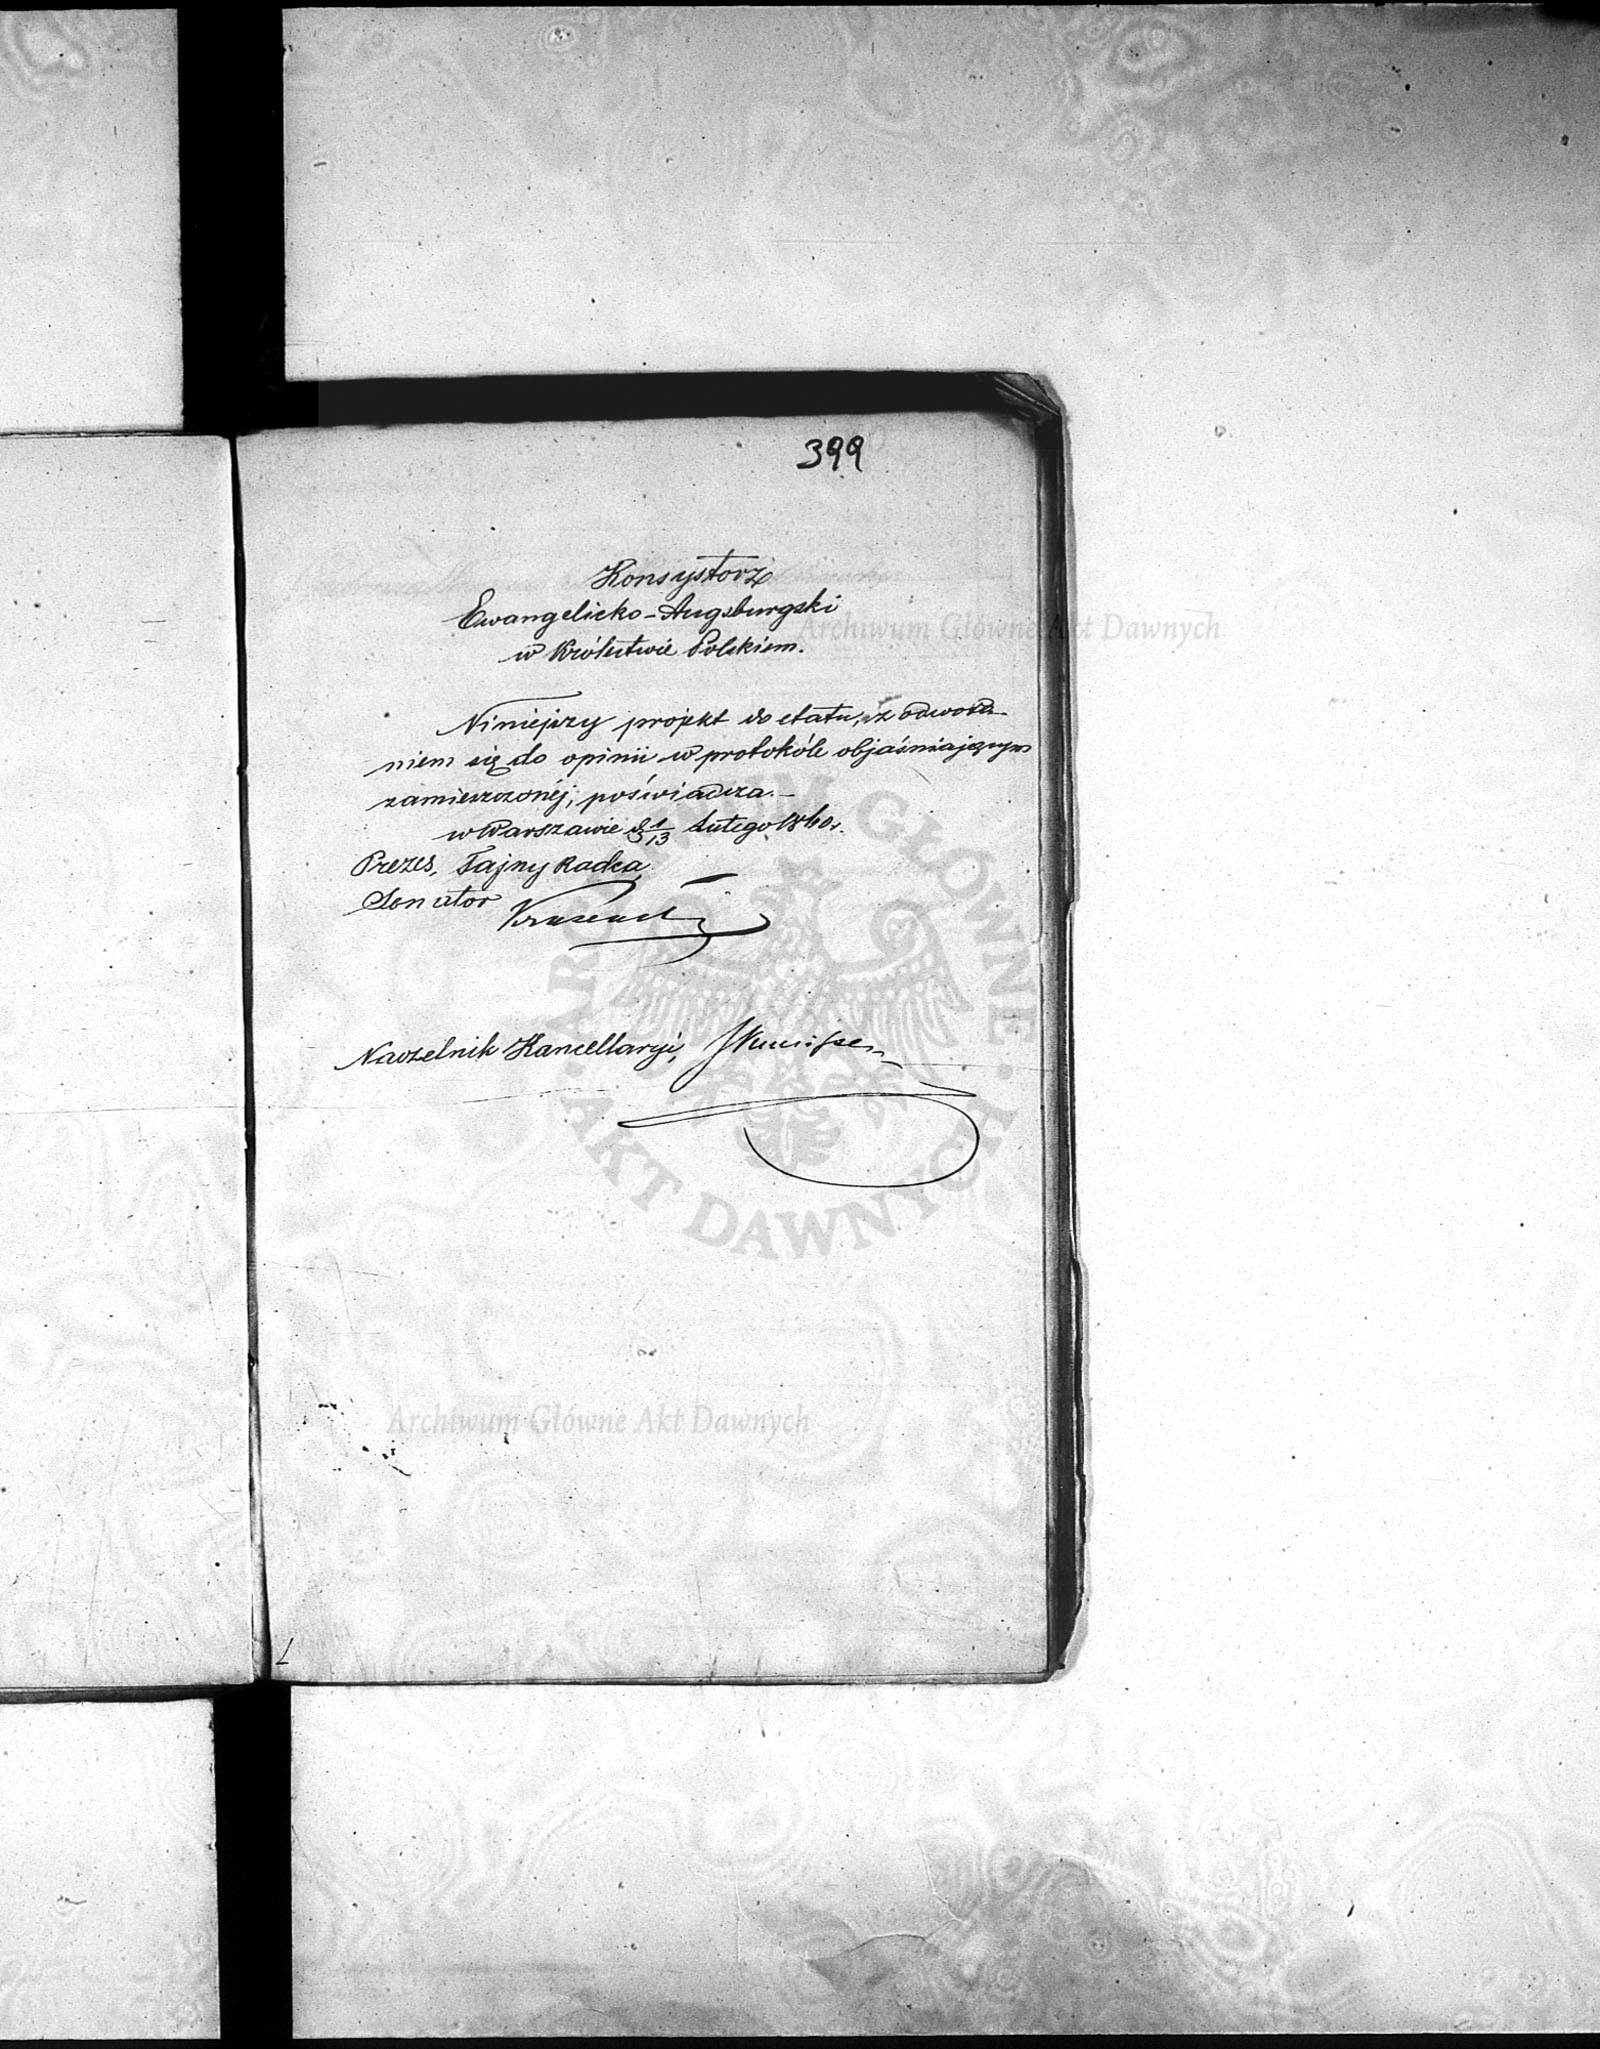 399
Konsystorz
Ewangelicko-Augsburgski
w Królestwie Polskiem.
Archiwum Główne Akt Dawnych
Niniejszy projekt do etatu, z odwoła-
niem się do opinii w protokóle objaśniającym
zamieszczonéj, poświadcza.-
w Warszawie d 1/13 Lutego 1860 r.
Prezes, Tajny Radca,
Senator
Naczelnik Kancellaryi,
ARCHIWUM GŁÓWNE · AKT DAWNYCH ·
Archiwum Główne Akt Dawnych